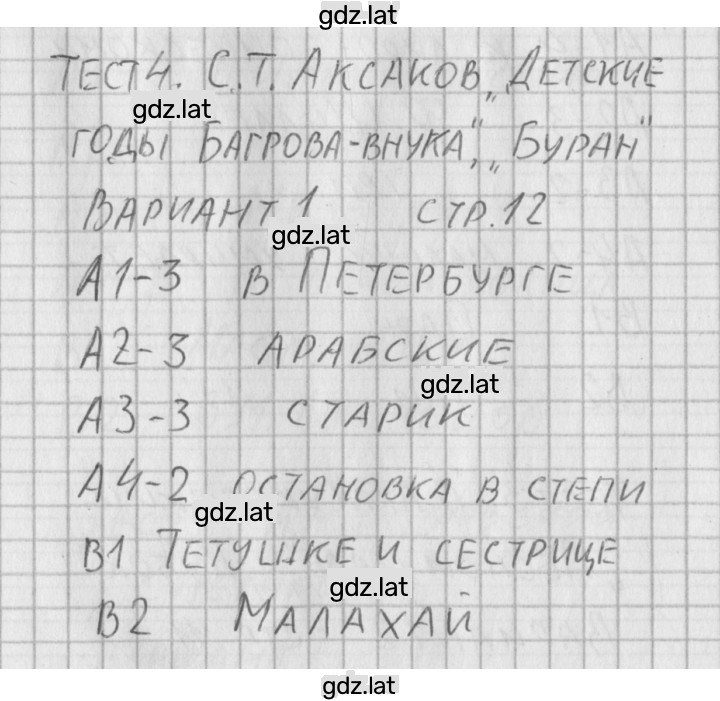 gdz.lat
ТЕСТ 4. С.Т. АКСАКОВ „ДЕТСКИЕ
gdz.lat
ГОДЫ БАГРОВА-ВНУКА", „БУРАН"
ВАРИАНТ 1 СТР.12
gdz.lat
А1-3 В ПЕТЕРБУРГЕ
А2-3 АРАБСКИЕ
gdz.lat
А3-3 СТАРИК
А4-2 ОСТАНОВКА В СТЕПИ
gdz.lat
В1 ТЕТУШКЕ И СЕСТРИЦЕ
gdz.lat
В2 МАЛАХАЙ
gdz.lat